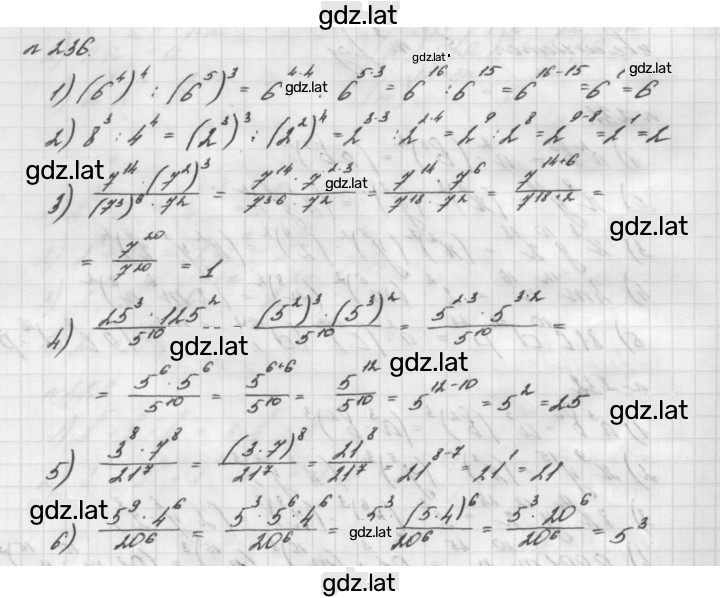 gdz.lat
n 236.
gdz.lat
1) (6⁴)⁴ : (6⁵)³ = 6^{4·4} : 6^{5·3} = 6^{16} : 6^{15} = 6^{16-15} = 6¹ = 6
gdz.lat
gdz.lat
2) 8³ : 4⁴ = (2³)³ : (2²)⁴ = 2^{3·3} : 2^{2·4} = 2⁹ : 2⁸ = 2^{9-8} = 2¹ = 2
gdz.lat
3) \frac{7^{14} · (7²)³}{(7³)⁶ · 7²} = \frac{7^{14} · 7^{2·3}}{7^{3·6} · 7²} = \frac{7^{14} · 7⁶}{7^{18} · 7²} = \frac{7^{14+6}}{7^{18+2}} =
gdz.lat
gdz.lat
= \frac{7^{20}}{7^{20}} = 1
4) \frac{25³ · 125²}{5^{10}} = \frac{(5²)³ · (5³)²}{5^{10}} = \frac{5^{2·3} · 5^{3·2}}{5^{10}} =
gdz.lat
gdz.lat
= \frac{5⁶ · 5⁶}{5^{10}} = \frac{5^{6+6}}{5^{10}} = \frac{5^{12}}{5^{10}} = 5^{12-10} = 5² = 25
gdz.lat
5) \frac{3⁸ · 7⁸}{21⁷} = \frac{(3·7)⁸}{21⁷} = \frac{21⁸}{21⁷} = 21^{8-7} = 21¹ = 21
gdz.lat
6) \frac{5⁹ · 4⁶}{20⁶} = \frac{5³ · 5⁶ · 4⁶}{20⁶} = \frac{5³ · (5·4)⁶}{20⁶} = \frac{5³ · 20⁶}{20⁶} = 5³
gdz.lat
gdz.lat